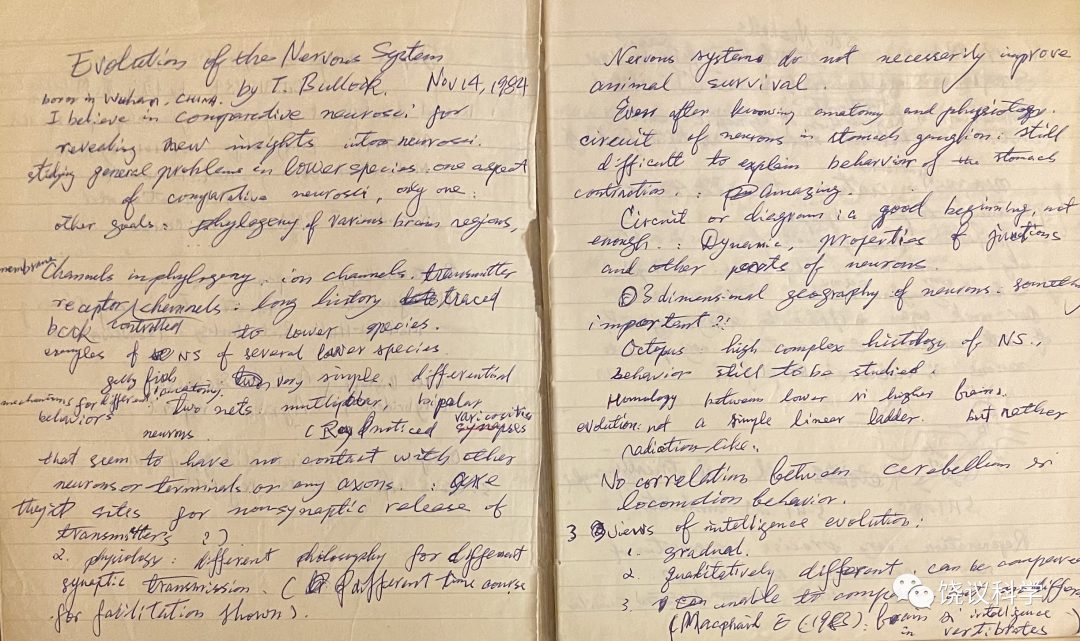 Evolution of the Nervous System
by T. Bullock. Nov 14, 1984
born in Wuhan, CHINA.
I believe in comparative neurosci for
revealing new insights into neurosci.
studying general problems in lower species: one aspect
of comparative neurosci, only one.
other goals: phylogeny of various brain regions,
membrane
Channels in phylogeny. ion channels. transmitter
receptor/channels: long history traced
controlled
back to lower species.
examples of NS of several lower species.
jelly fish very simple. differential
mechanisms for different anatomy.
behaviors two nets: multipolar, bipolar
neurons. ( noticed varicosities synapses
that seem to have no contact with other
neurons or terminals or any axons. : are
they sites for nonsynaptic release of
transmitters ?)
2. physiology: different philosophy for different
synaptic transmission. ( different time course
for facilitation shown).
Nervous systems do not necessarily improve
animal survival.
Even after knowing anatomy and physiology.
circuit of neurons in stomach ganglion: still
difficult to explain behavior of the stomach
contraction. : Amazing.
Circuit or diagram: a good beginning, not
enough. : Dynamic, properties of junctions
and other parts of neurons.
3 dimensional geography of neurons.
important ?!
Octopus high complex histology of NS.,
behavior still to be studied.
Homology between lower & higher brains.
evolution: not a simple linear ladder. but rather
radiation-like.
No correlation between cerebellum &
locomotion behavior.
3 views of intelligence evolution:
1. gradual.
2. qualitatively different, can be compared
3. unable to
(Macphail E (1982): brain & intelligence
in vertibrates )
饶议科学